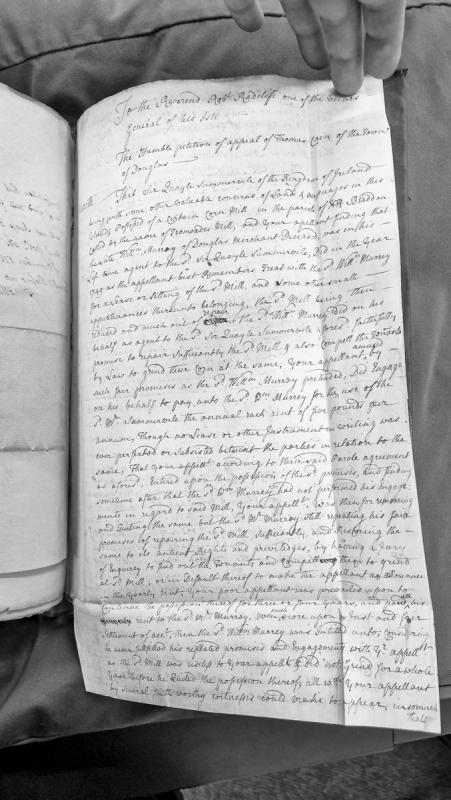 To the Reverend Robt Radcliff one of the Vicars
General of this Isle
The Humble petition of appeal of Thomas Coen of the Town
of Douglas
Sheweth. That Sir Quayle Summersvile of the Kingdom of Ireland
being with some other valuable concerns of Lands & messuages in this
Island, posessed of a Certain Corn Mill in the parish of KK Braddan
Called by the name of Mill, and your appellant finding that
Willm Murrey of Douglas Merchant Deceased, was in his
Life time agent to the sd Sir Quayle Summersvile, Did in the year
as the appellant best Remembers treat with the sd Willm Murrey
for a Lease or Setting of the sd Mill, and some other small
appurtenances thereunto belonging, the sd Mill being then
reduced and much out of repair, & the sd Willm Murrey Did on his
behalf as agent to the sd Sir Quayle Summersvile afores'd faithfully
promise to repair Sufficiently the sd Mill, & also Compell the Tenants
by Law to grind their Corn at the same, your appellant, by
such fair promises as the sd Willm Murrey pretended, Did Engage
on his behalf to pay unto the sd Wm Murrey for the use of the
sd Sr. Summersvile the annual rack rent of five pounds per
annum, Though no Lease or other Instrument in writing was
ever perfected or subsisted betwixt the parties in relation to the
same, That your appellt according to the said Parole agreement
as aforesd Entred upon the possession of the sd premises, and finding
sometime after that the sd Wm Murrey had not performed his Engage
ments in regard to said Mill, your appellt was then for removing
and Quiting the same but the sd Wm Murrey still repeating his fair
promises of repairing the sd Mill Sufficiently, and Restoring the
same to its antient Rights and priviledges, by having a Jury
of Inquirey to find out the Tenants and Compell them to grind
at sd Mill, or in Default thereof to make the appellant an allowance
in the yearly rent, your poor appellant was prevailed upon to
Continue the possession thereof for three or four years, and paid all his
rent to the sd Wm Murrey, even more upon a Just and fair
Settlement of acct, then the sd Willm Murrey was Intitled unto, Considering
he never fulfilled his repeated promises and Engagements with yr appellt
as the sd Mill was useless to your appellt & did not Grind for a whole
year before he Quited the possession thereof, all wch your appellant
by several Truth worthy witnesses could make to appear, insomuch
that